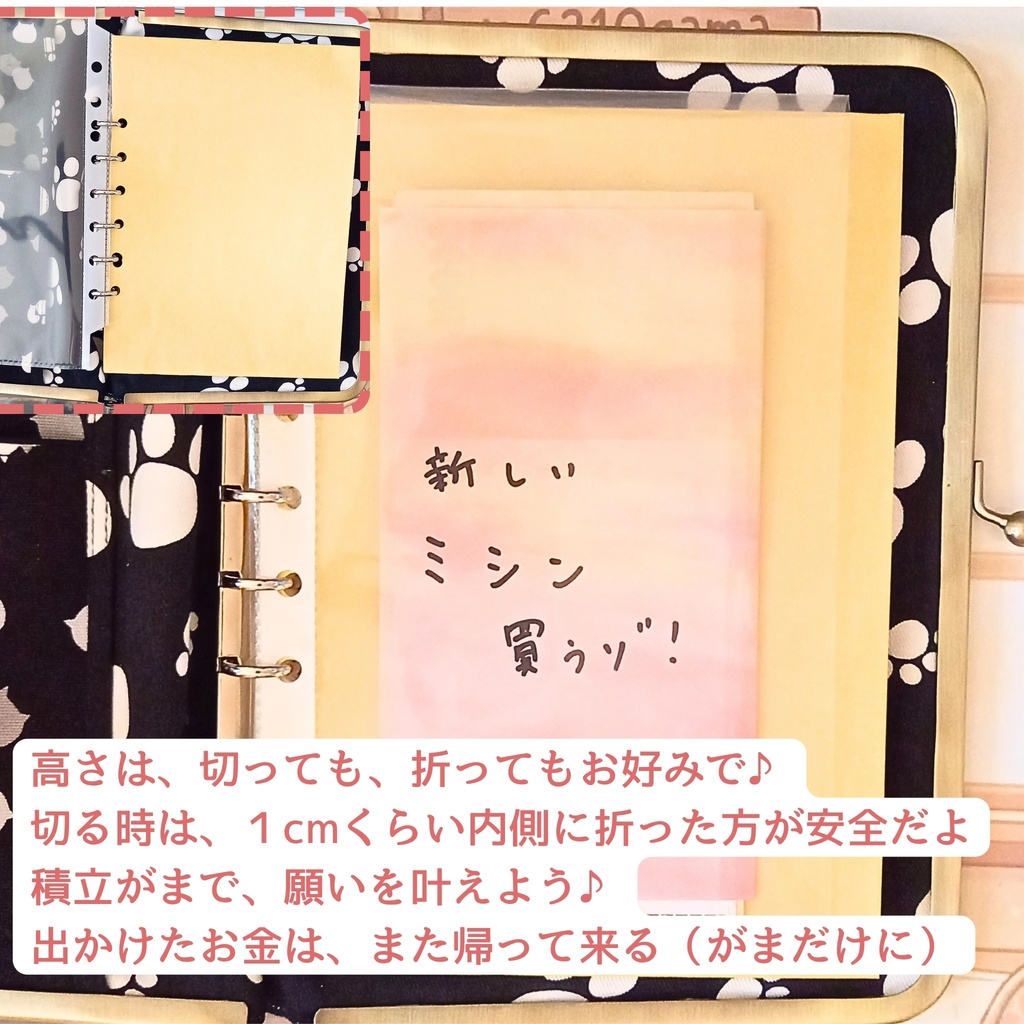 新しい
ミシン
買うゾ!
高さは、切っても、折ってもお好みで♪
切る時は、１cmくらい内側に折った方が安全だよ
積立がまで、願いを叶えよう♪
出かけたお金は、また帰って来る（がまだけに）